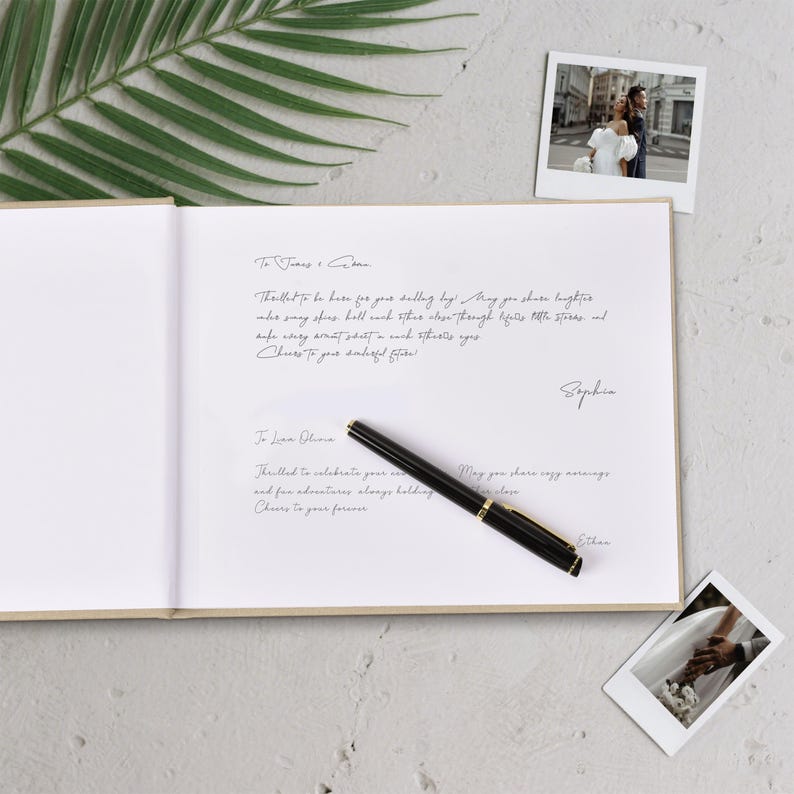 To James & Emma,
Thrilled to be here for your wedding day! May you share laughter
under sunny skies, hold each other close through life▯s little storms, and
make every moment sweet in each other▯s eyes.
Cheers to your wonderful future!
Sophia
To Liam Olivia
Thrilled to celebrate your new May you share cozy mornings
and fun adventures always holding close
Cheers to your forever
Ethan